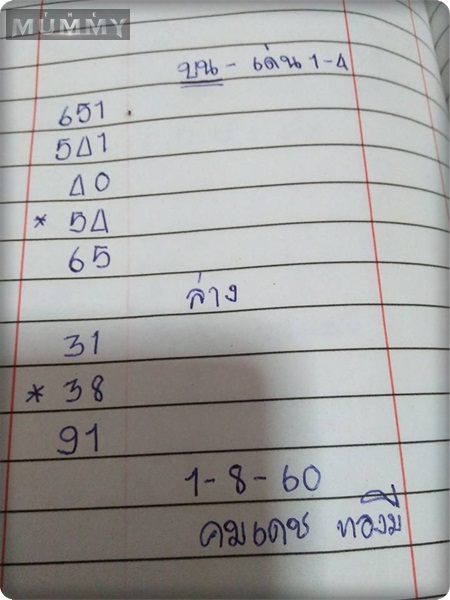 MUMMY
บน - เด่น 1-4
651
541
40
* 54
65
ล่าง
31
* 38
91
1-8-60
คมเดช ทองมี